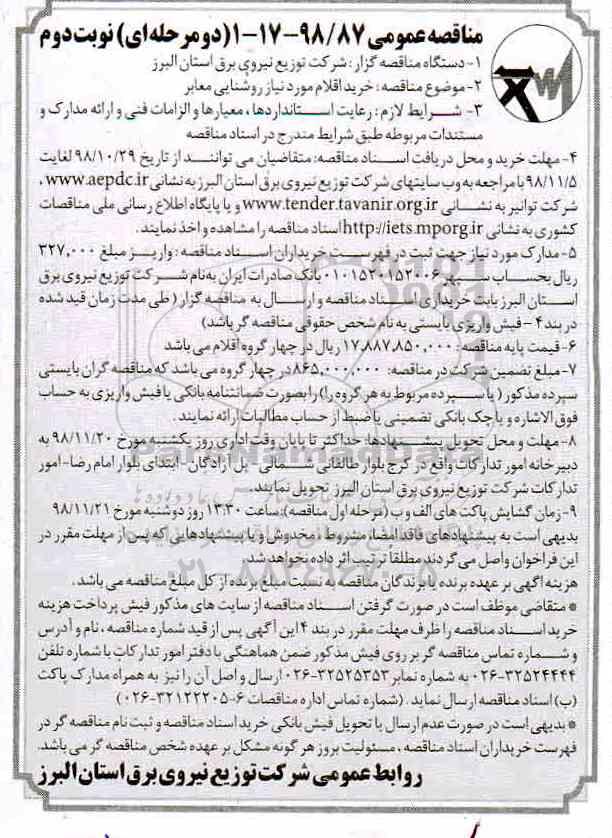 مناقصه عمومی ۹۸/۸۷-۱۷-۱ (دو مرحله ای) نوبت دوم
۱- دستگاه مناقصه گزار: شرکت توزیع نیروی برق استان البرز
۲- موضوع مناقصه: خرید اقلام مورد نیاز روشنایی معابر
۳- شرایط لازم: رعایت استانداردها، معیارها و الزامات فنی و ارائه مدارک و
مستندات مربوطه طبق شرایط مندرج در اسناد مناقصه
۴- مهلت خرید و محل دریافت اسناد مناقصه: متقاضیان می توانند از تاریخ ۹۸/۱۰/۲۹ لغایت
۹۸/۱۱/۵ با مراجعه به وب سایتهای شرکت توزیع نیروی برق استان البرز به نشانی www.aepdc.ir ،
شرکت توانیر به نشانی www.tender.tavanir.org.ir و یا پایگاه اطلاع رسانی ملی مناقصات
کشوری به نشانی http://iets.mporg.ir اسناد مناقصه را مشاهده و اخذ نمایند.
۵- مدارک مورد نیاز جهت ثبت در فهرست خریداران اسناد مناقصه: واریز مبلغ ۳۲۷,۰۰۰
ریال بحساب سپهر ۰۱۰۱۵۲۰۱۵۲۰۰۶ بانک صادرات ایران به نام شرکت توزیع نیروی برق
استان البرز بابت خریداری اسناد مناقصه و ارسال به مناقصه گزار (طی مدت زمان قید شده
در بند ۴ - فیش واریزی بایستی به نام شخص حقوقی مناقصه گر باشد)
۶- قیمت پایه مناقصه: ۱۷,۸۸۷,۸۵۰,۰۰۰ ریال در چهار گروه اقلام می باشد
۷- مبلغ تضمین شرکت در مناقصه: ۸۶۵,۰۰۰,۰۰۰ در چهار گروه می باشد که مناقصه گران بایستی
سپرده مذکور (یا سپرده مربوط به هر گروه را) را بصورت ضمانتنامه بانکی یا فیش واریزی به حساب
فوق الاشاره و یا چک بانکی تضمینی یا ضبط از حساب مطالبات ارائه نمایند.
۸- مهلت و محل تحویل پیشنهادها: حداکثر تا پایان وقت اداری روز یکشنبه مورخ ۹۸/۱۱/۲۰ به
دبیرخانه امور تدارکات واقع در کرج بلوار طالقانی شمالی- پل آزادگان- ابتدای بلوار امام رضا- امور
تدارکات شرکت توزیع نیروی برق استان البرز تحویل نمایند.
۹- زمان گشایش پاکت های الف و ب (مرحله اول مناقصه): ساعت ۱۳:۳۰ روز دوشنبه مورخ ۹۸/۱۱/۲۱
بدیهی است به پیشنهادهای فاقد امضا، مشروط، مخدوش و یا پیشنهادهایی که پس از مهلت مقرر در
این فراخوان واصل می گردند مطلقاً ترتیب اثر داده نخواهد شد.
هزینه آگهی بر عهده برنده یا برندگان مناقصه به نسبت مبلغ برنده از کل مبلغ مناقصه می باشد.
* متقاضی موظف است در صورت گرفتن اسناد مناقصه از سایت های مذکور فیش پرداخت هزینه
خرید اسناد مناقصه را ظرف مهلت مقرر در بند ۴ این آگهی پس از قید شماره مناقصه، نام و آدرس
و شماره تماس مناقصه گر بر روی فیش مذکور ضمن هماهنگی با دفتر امور تدارکات با شماره تلفن
۰۲۶-۳۲۵۲۴۴۴۴ به شماره نمابر ۰۲۶-۳۲۵۲۵۳۵۳ ارسال و اصل آن را نیز به همراه مدارک پاکت
(ب) اسناد مناقصه ارسال نماید. (شماره تماس اداره مناقصات ۶-۰۲۶-۳۲۱۲۲۲۰۵)
* بدیهی است در صورت عدم ارسال یا تحویل فیش بانکی خرید اسناد مناقصه و ثبت نام مناقصه گر در
فهرست خریداران اسناد مناقصه، مسئولیت بروز هر گونه مشکل بر عهده شخص مناقصه گر می باشد.
روابط عمومی شرکت توزیع نیروی برق استان البرز